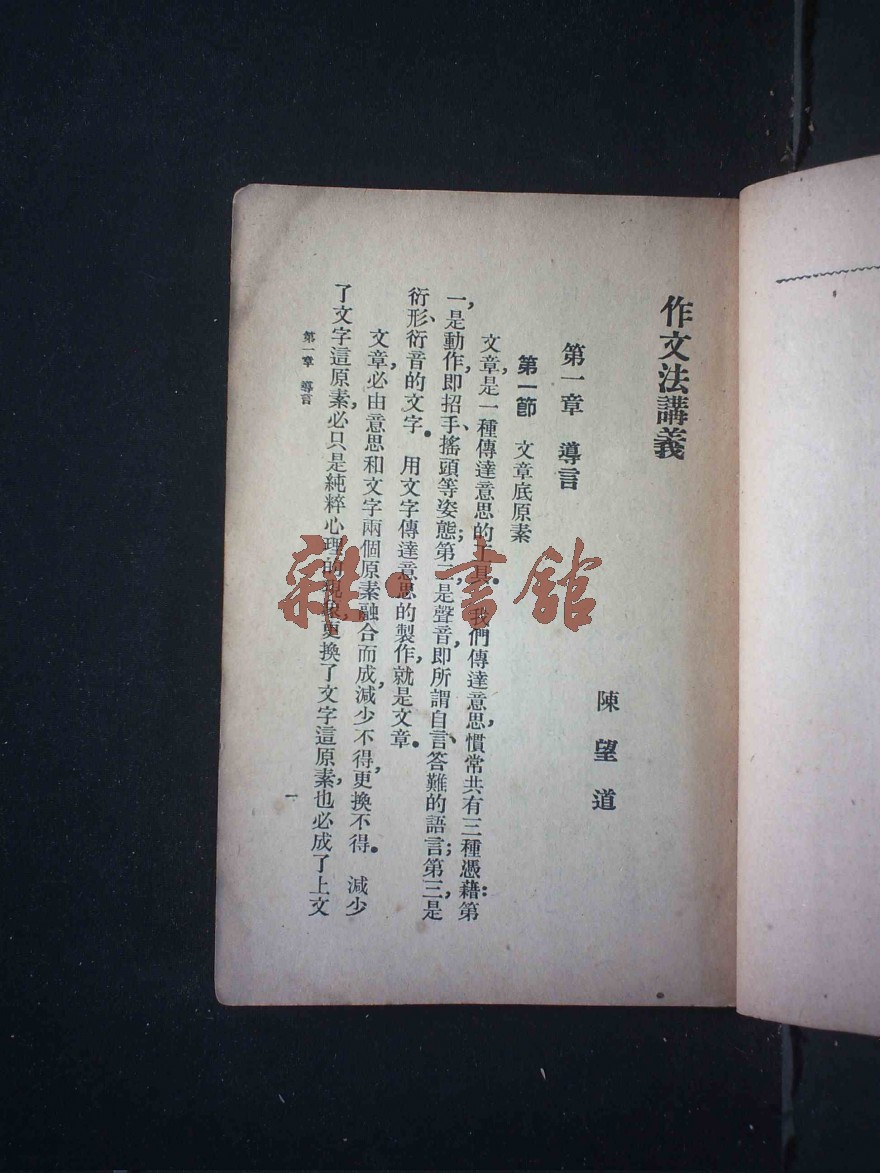 作文法講義
陳望道
第一章 導言
第一節 文章底原素
文章，是一種傳達意思的工具。我們傳達意思，慣常共有三種憑藉：第
一，是動作，即招手、搖頭等姿態；第二，是聲音，即所謂自言、答難的語言；第三，是
衍形、衍音的文字。用文字傳達意思的製作，就是文章。
文章，必由意思和文字兩個原素融合而成，減少不得，更換不得。減少
了文字這原素，必只是純粹心理的現象，更換了文字這原素，也必成了上文
第一章 導言
一
雜·書館